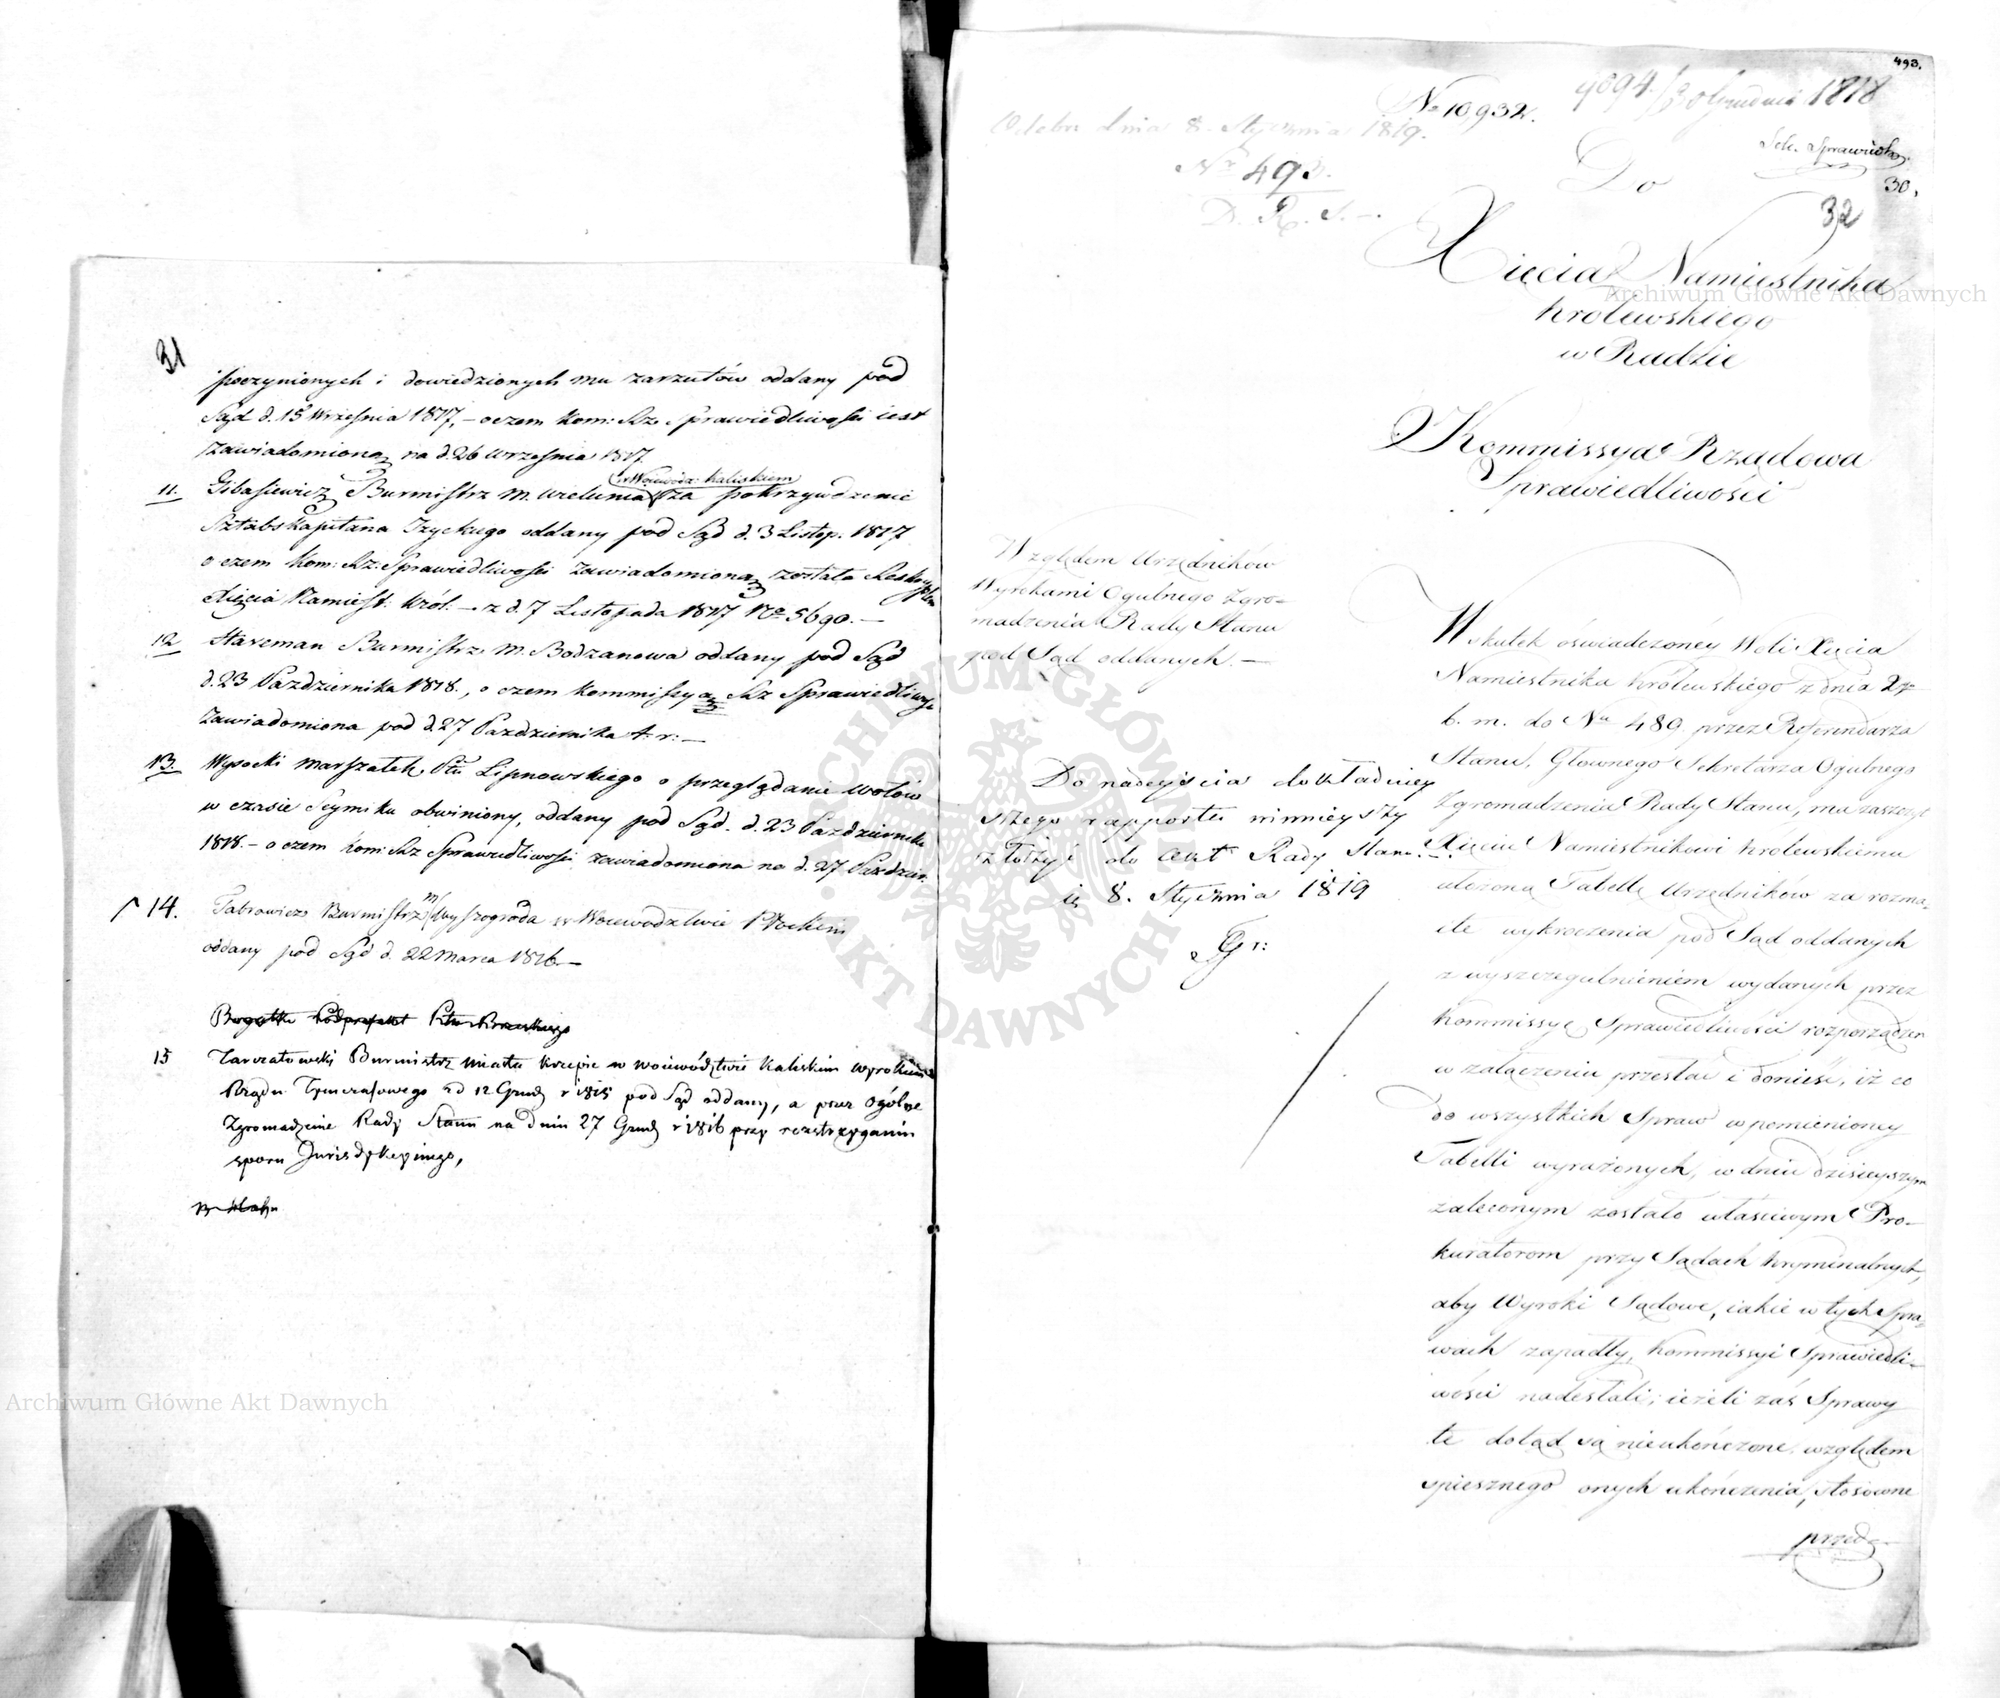 31
poczynionych i dowiedzionych mu zarzutów oddany pod
Sąd d. 15 Września 1817, – o czem Kom: Rz. Sprawiedliwości iest
zawiadomiona na d. 26 Września 1817.
w Woiewódz: Kaliskiem
11. Gibasiewicz Burmistrz m. Wielunia za pokrzywdzenie
Sztabs Kapitana Izyckiego oddany pod Sąd d. 3 Listop. 1817
o czem Kom: Rz: Sprawiedliwości zawiadomiona została
Xięcia Namiest: Król. – z d. 7 Listopada 1817 No 5690. –
12 Stareman Burmistrz m. Bodzanowa oddany pod Sąd
d. 23 Października 1818., o czem Kommissya Rz Sprawiedliwości
zawiadomiona pod d. 27 Października t. r: –
13. Wysocki Marszałek Ptu Lipnowskiego o przeglądanie wotów
w czasie Seymiku obwiniony, oddany pod Sąd. d. 23 Października
1818. – o czem Kom: Rz Sprawiedliwości zawiadomiona na d. 27 Paździer.
14. Tabrowicz Burmistrz m Wyszogroda w Woiewodztwie Płockim
oddany pod Sąd d. 22 Marca 1816. –
15 Tarczałowski Burmistrz miasta Krzepic w Woiewództwie Kaliskim wyrokiem
Rządu Tymczasowego z d 12 Grud r 1815 pod Sąd oddany, a przez Ogólne
Zgromadzenie Rady Stanu na dniu 27 Grud r 1816 przy rozstrzyganiu
sporu Jurisdykcyinego,
493.
No 10,932.
9094/30 Grudnia 1818
dnia 8. Stycznia 1819.
Nr 493.
D. R. S. –
Sek. Sprawiedl.
30.
32
Do
Xięcia Namiestnika
Królewskiego
w Radzie
Kommissya Rządowa
Sprawiedliwości
Względem Urzędników
Wyrokami Ogulnego Zgro-
madzenia Rady Stanu
pod Sąd oddanych. –
Do nadeyścia dokładniey
szego rapportu ninieyszy
złożyć do Akt Rady Stanu.
8. Stycznia 1819
Gr:
W skutek oświadczoney Woli Xięcia
Namiestnika Królewskiego z dnia 27
b. m. do Nu 489 przez Referendarza
Stanu, Głownego Sekretarza Ogulnego
Zgromadzenia Rady Stanu, ma zaszczyt
Xięciu Namiestnikowi Królewskiemu
ułożoną Tabellę Urzędników za rozma-
ite wykroczenia pod Sąd oddanych
z wyszczegulnieniem wydanych przez
Kommissyę Sprawiedliwości rozporządzeń
w załączeniu przesłać i donieść, iż co
do wszystkich Spraw w pomienioney
Tabelli wyrażonych, w dniu dzisieyszym
zaleconym zostało właściwym Pro-
kuratorom przy Sądach Kryminalnych,
aby Wyroki Sądowe, iakie w tych Spra-
wach zapadły, Kommissyi Sprawiedli-
wości nadesłali; ieżeli zaś Sprawy
te dotąd są nieukończone, względem
spiesznego onych ukończenia, stosowne
przed-
Archiwum Główne Akt Dawnych
Archiwum Główne Akt Dawnych
ARCHIWUM GŁÓWNE AKT DAWNYCH